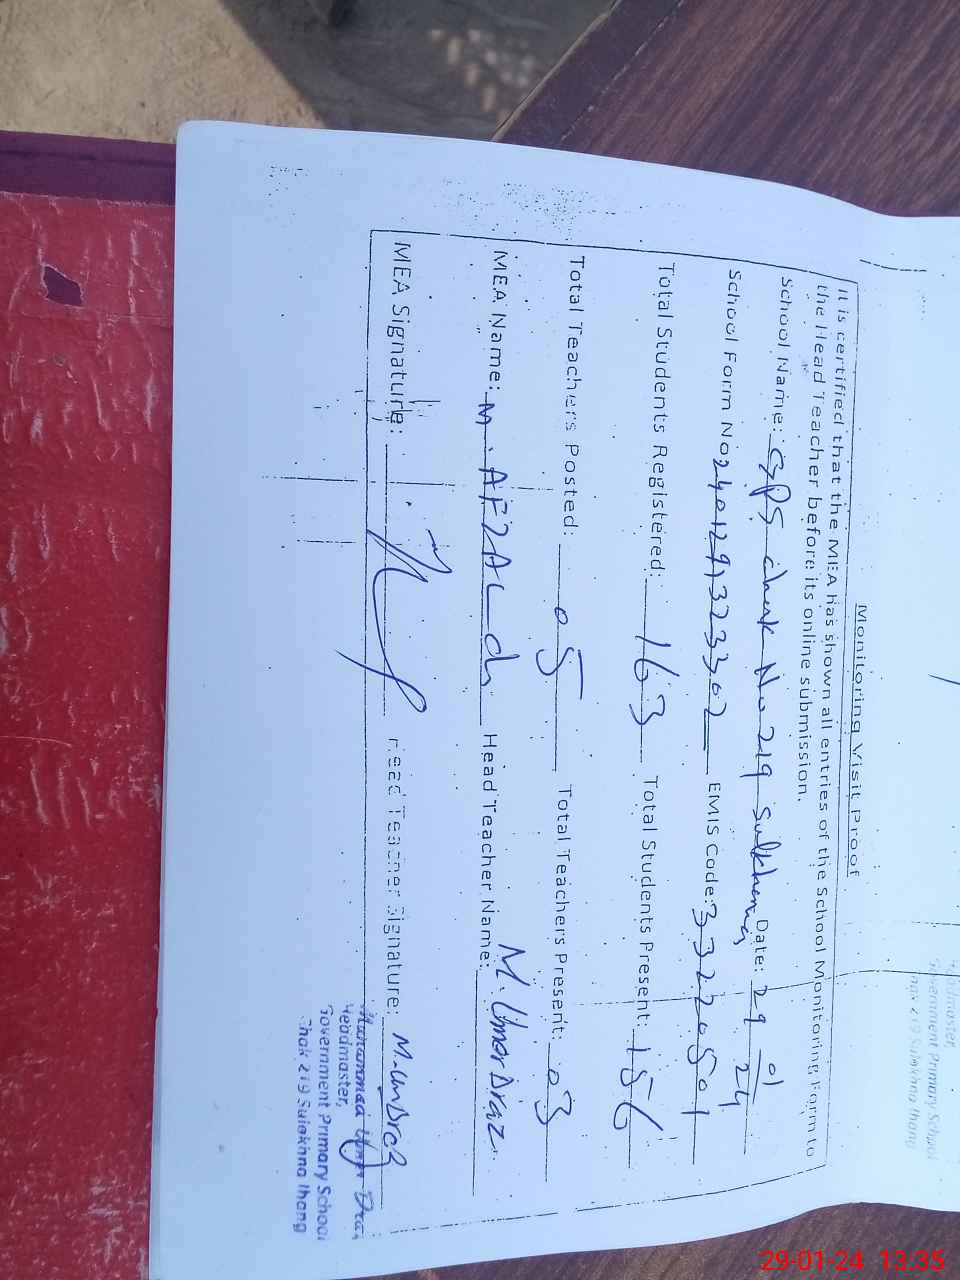 Monitoring Visit Proof
It is certified that the MEA has shown all entries of the School Monitoring Form to
the Head Teacher before its online submission.
School Name: GPS chak No 219 Date: 29 01 24
School Form No 24012913233302 EMIS Code: 33220501
Total Students Registered: 163 Total Students Present: 156
Total Teachers Posted: 05 Total Teachers Present: 03
MEA Name: M. AFZAL Head Teacher Name: M. Umar Draz
MEA Signature: Head Teacher Signature:
Muhammad Umar Draz
Headmaster,
Government Primary School
Chak 219 Jhang
Headmaster
Government Primary School
Chak 219 Jhang
29-01-24 13:35